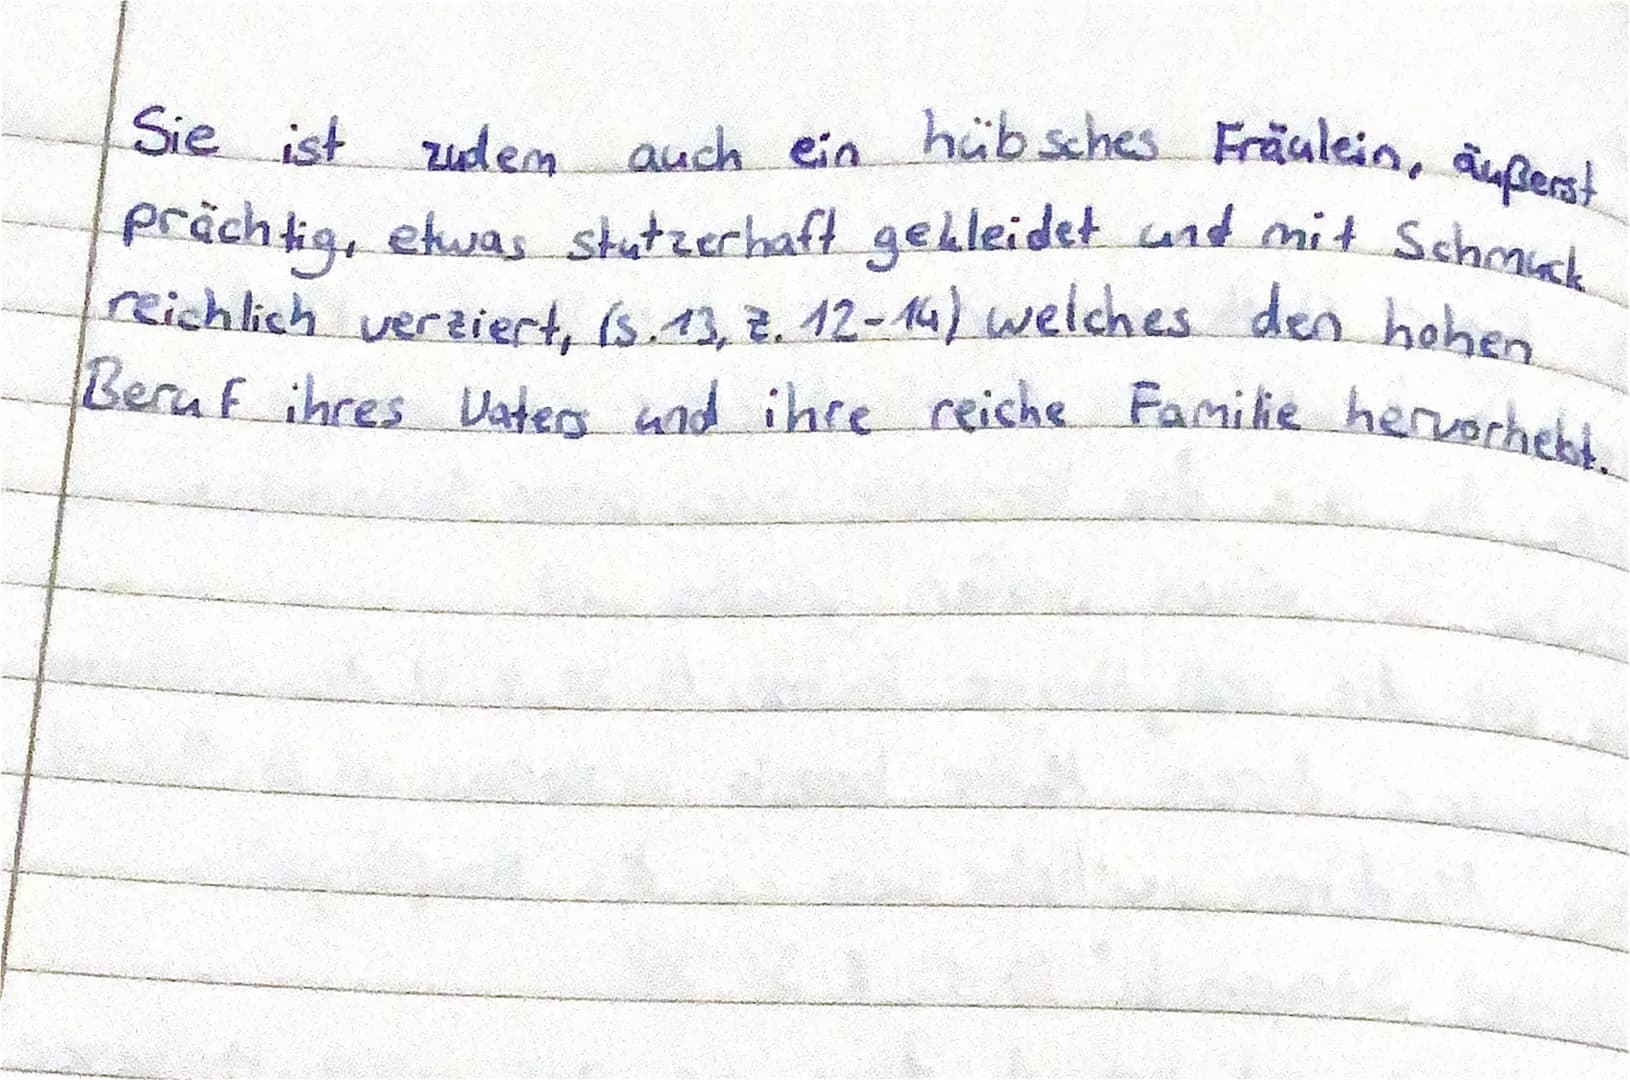 Sie ist zudem auch ein hübsches Fräulein, äußerst
prächtig, etwas stutzerhaft gekleidet und mit Schmuck
reichlich verziert, (S. 13, Z. 12-14) welches den hohen
Beruf ihres Vaters und ihre reiche Familie hervorhebt.